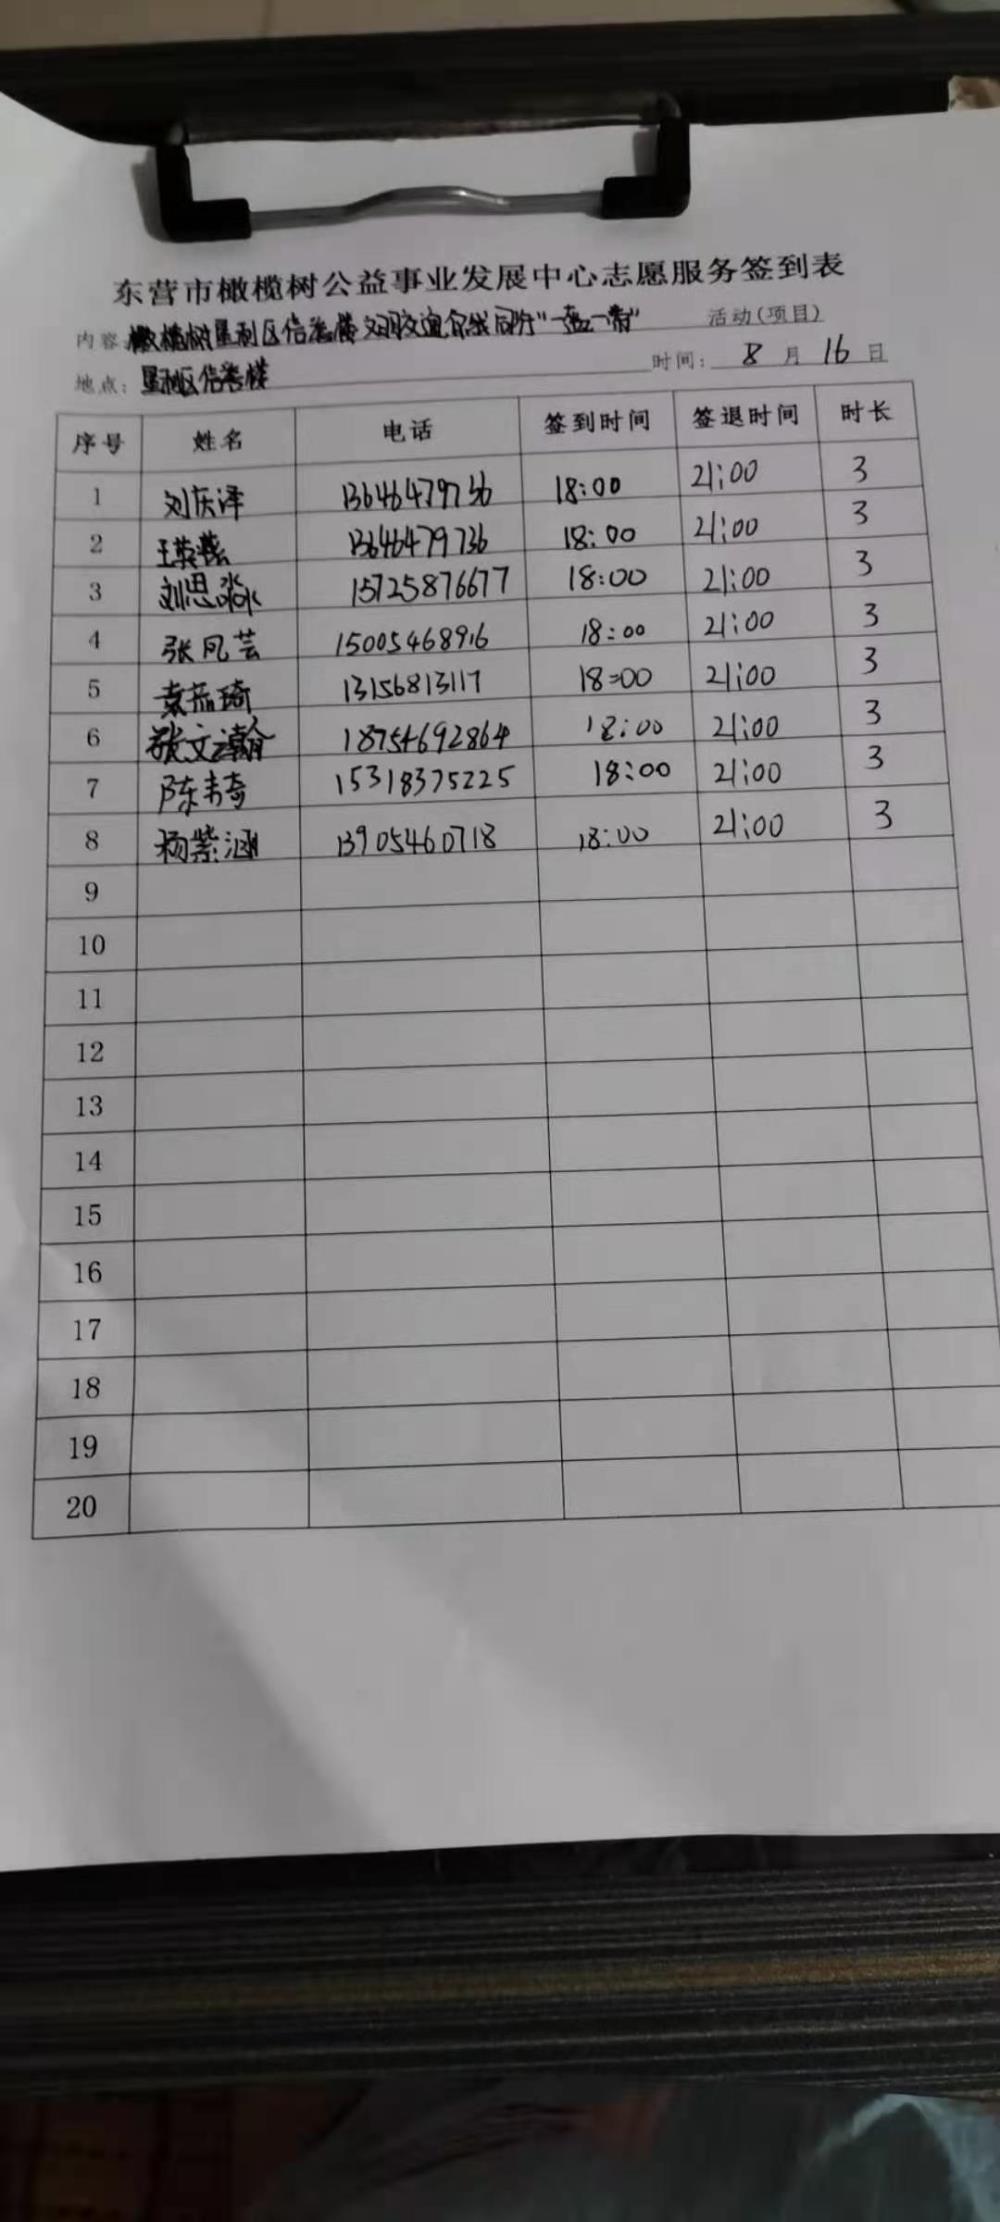 东营市橄榄树公益事业发展中心志愿服务签到表
内容:橄榄树垦利区信誉楼文明交通你我同行"一盔一带" 活动(项目)
地点:垦利区信誉楼 时间:8月16日
序号 姓名 电话 签到时间 签退时间 时长
1 刘庆泽 13646479736 18:00 21:00 3
2 王英燕 13646479736 18:00 21:00 3
3 刘思淼 15725876677 18:00 21:00 3
4 张凤芸 15005468916 18:00 21:00 3
5 袁 琦 13156813117 18:00 21:00 3
6 张文瀚 18754692864 18:00 21:00 3
7 陈韦奇 15318375225 18:00 21:00 3
8 杨紫涵 13905460718 18:00 21:00 3
9
10
11
12
13
14
15
16
17
18
19
20